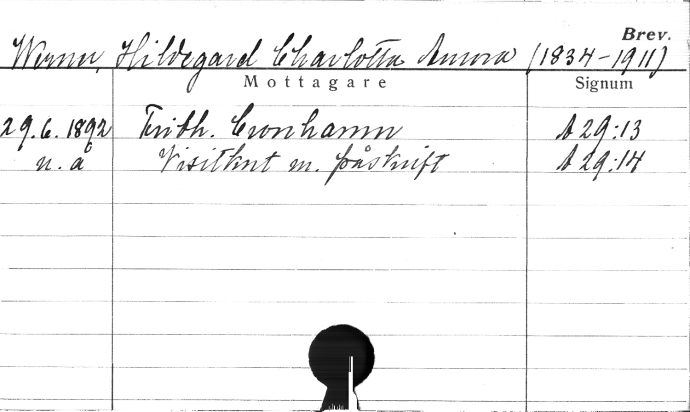 Brev.
Werner, Hildegard Charlotta Aurora (1834-1911)
Mottagare Signum
29.6.1892 Frith. Cronhamn A 29:13
u. å Visitkort m. påskrift A 29:14